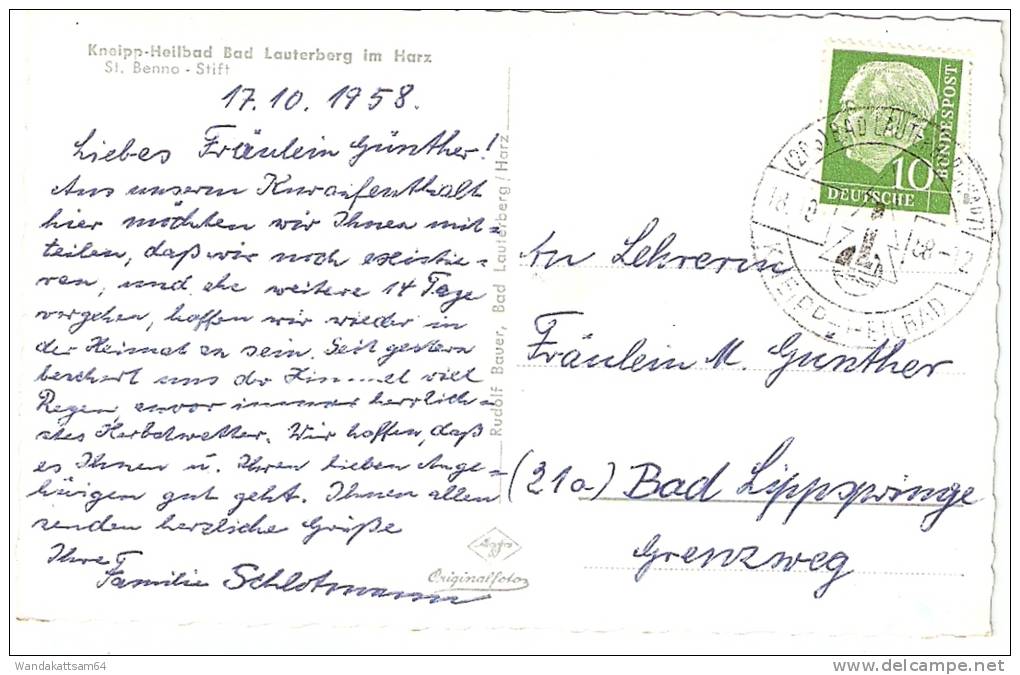 Kneipp-Heilbad Bad Lauterberg im Harz
St. Benno - Stift
17.10.1958.
Liebes Fräulein Günther!
Aus unserm Kuraufenthalt
hier möchten wir Ihnen mit=
teilen, daß wir noch existie=
ren, und ehe weitere 14 Tage
vergehen, hoffen wir wieder in
der Heimat zu sein. Seit gestern
beschert uns der Himmel viel
Regen, zuvor immer herrlich=
stes Herbstwetter. Wir hoffen, daß
es Ihnen u. Ihren lieben Ange=
hörigen gut geht. Ihnen allen
senden herzliche Grüße
Ihre
Familie Schlotmann
Rudolf Bauer, Bad Lauterberg/Harz
Agfa
Originalfoto
10
DEUTSCHE
BUNDESPOST
An Lehrerin
Fräulein M. Günther
(21a) Bad Lippspringe
Grenzweg
Wandakattsam64
delcampe.net